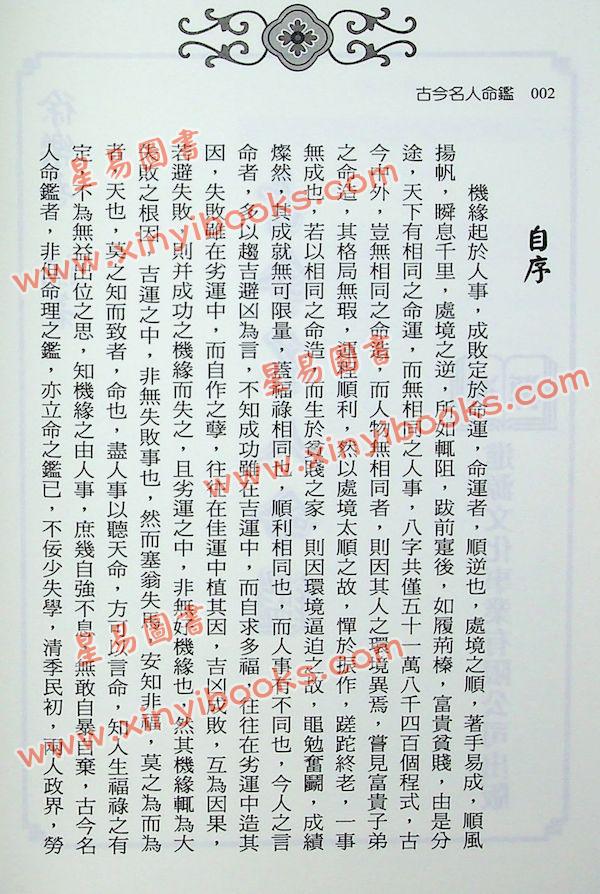 古今名人命鑑　002
自序
機緣起於人事，成敗定於命運，命運者，順逆也，處境之順，著手易成，順風
揚帆，瞬息千里，處境之逆，所如輒阻，跋前疐後，如履荊榛，富貴貧賤，由是分
途，天下有相同之命運，而無相同之人事，八字共僅五十一萬八千四百個程式，古
今中外，豈無相同之命造，而人物無相同者，則因其人之環境異焉，嘗見富貴子弟
之命造，其格局無瑕，運程順利，然以處境太順之故，憚於振作，蹉跎終老，一事
無成也，若以相同之命造，而生於貧賤之家，則因環境逼迫之故，黽勉奮鬭，成績
燦然，其成就無可限量，蓋福祿相同也，順利相同也，而人事有不同也，今人之言
命者，多以趨吉避凶為言，不知成功雖在吉運中，而自求多福，往往在劣運中造其
因，失敗雖在劣運中，而自作之孽，往往在佳運中植其因，吉凶成敗，互為因果，
若避失敗，則并成功之機緣而失之，且劣運之中，非無好機緣也，然其機緣輒為大
失敗之根因，吉運之中，非無失敗事也，然而塞翁失馬，安知非福，莫之為而為
者，天也，莫之知而致者，命也，盡人事以聽天命，方可以言命，知人生福祿之有
定，不為無益出位之思，知機緣之由人事，庶幾自強不息，無敢自暴自棄，古今名
人命鑑者，非但命理之鑑，亦立命之鑑已，不佞少失學，清季民初，兩人政界，勞
星易圖書
www.xinyibooks.com
星易圖書
www.xinyibooks.com
星易圖書
www.xinyibooks.com